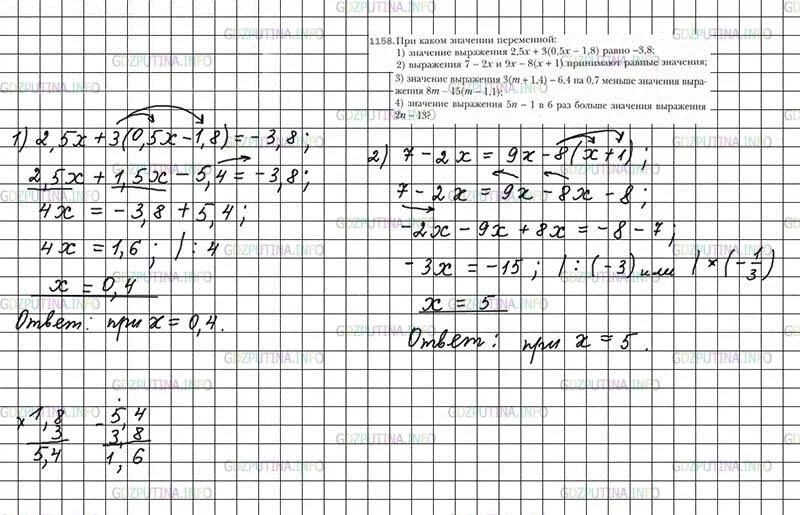 1158. При каком значении переменной:
1) значение выражения 2,5x + 3(0,5x – 1,8) равно –3,8;
2) выражения 7 – 2x и 9x – 8(x + 1) принимают равные значения;
3) значение выражения 3(m + 1,4) – 6,4 на 0,7 меньше значения выра-
жения 8m – 15(m – 1,1);
4) значение выражения 5n – 1 в 6 раз больше значения выражения
2n – 13?
1) 2,5x + 3(0,5x – 1,8) = – 3,8;
2,5x + 1,5x – 5,4 = – 3,8;
4x = – 3,8 + 5,4;
4x = 1,6; | : 4
x = 0,4
Ответ: при x = 0,4.
× 1,8
3
5,4
– 5,4
3,8
1,6
2) 7 – 2x = 9x – 8(x + 1);
7 – 2x = 9x – 8x – 8;
– 2x – 9x + 8x = – 8 – 7;
– 3x = – 15; | : (– 3) или | × (– 1/3)
x = 5
Ответ: при x = 5.
GDZPUTINA.INFO